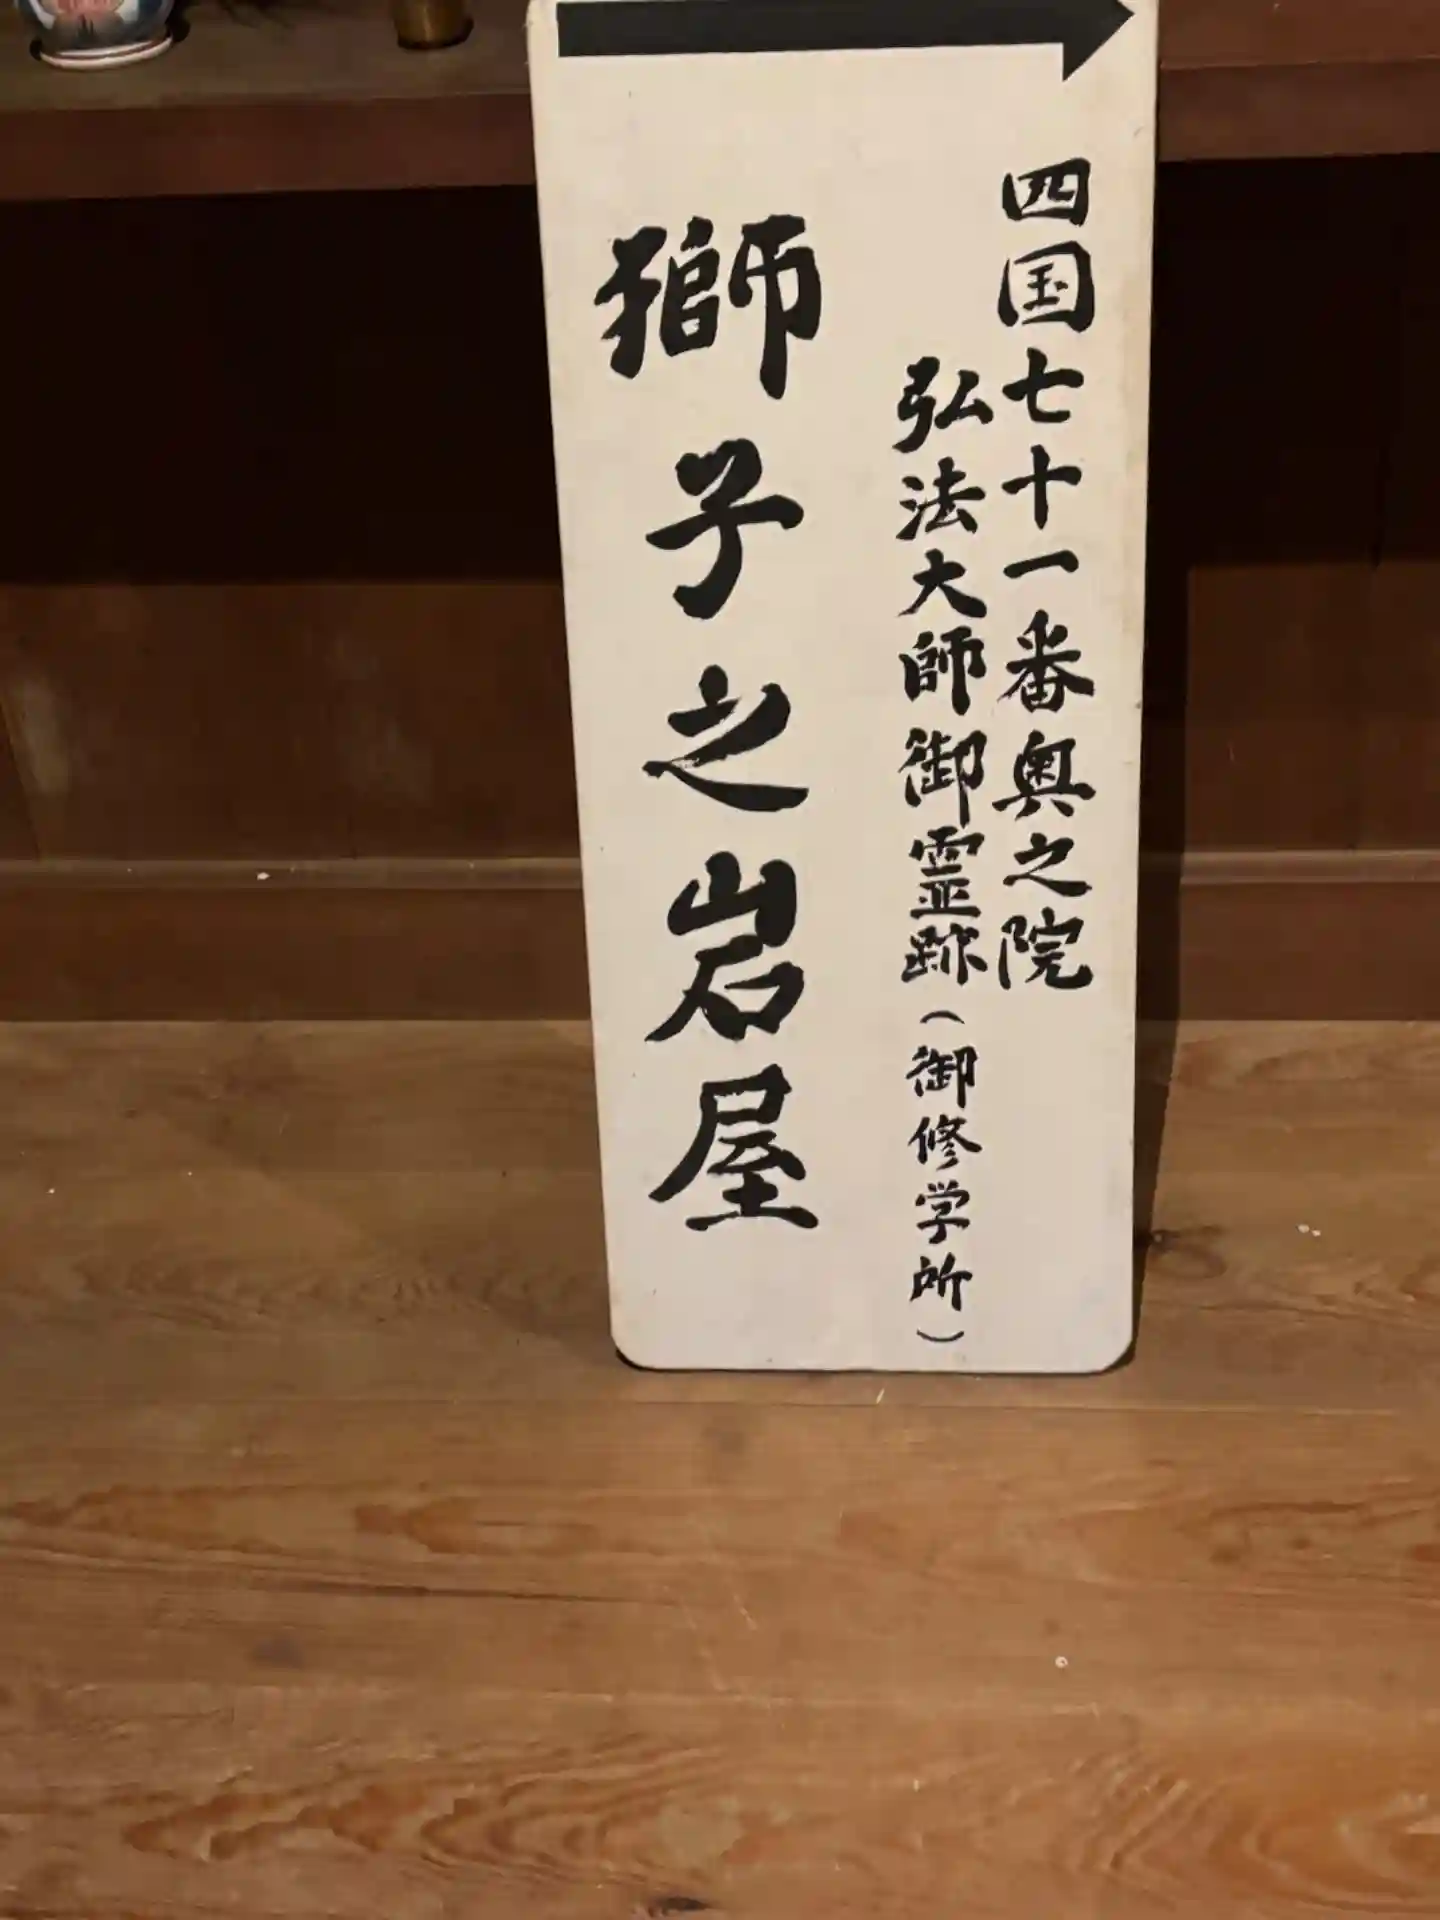 四国七十一番奥之院
弘法大師御霊跡(御修学所)
獅子之岩屋